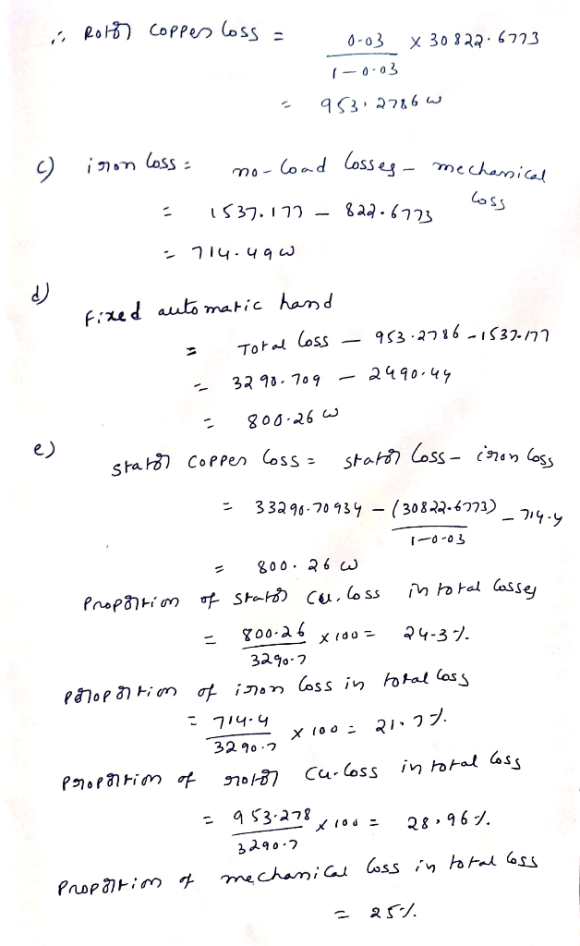 ∴ Rotor copper loss = 0.03 / 1-0.03 × 30822.6773
= 953.2786 w
c) iron loss = no-load losses - mechanical loss
= 1537.177 - 822.6773
= 714.49 w
d) Fixed automatic hand
= Total loss - 953.2786 - 1537.177
= 3290.709 - 2490.44
= 800.26 w
e) stator copper loss = stator loss - iron loss
= 33290.70934 - (30822.6773) / 1-0.03 - 714.4
= 800.26 w
Proportion of stator cu. loss in total losses
= 800.26 / 3290.7 × 100 = 24.3 %.
proportion of iron loss in total loss
= 714.4 / 3290.7 × 100 = 21.7 %.
proportion of rotor cu-loss in total loss
= 953.278 / 3290.7 × 100 = 28.96 %.
Proportion of mechanical loss in total loss
= 25 %.